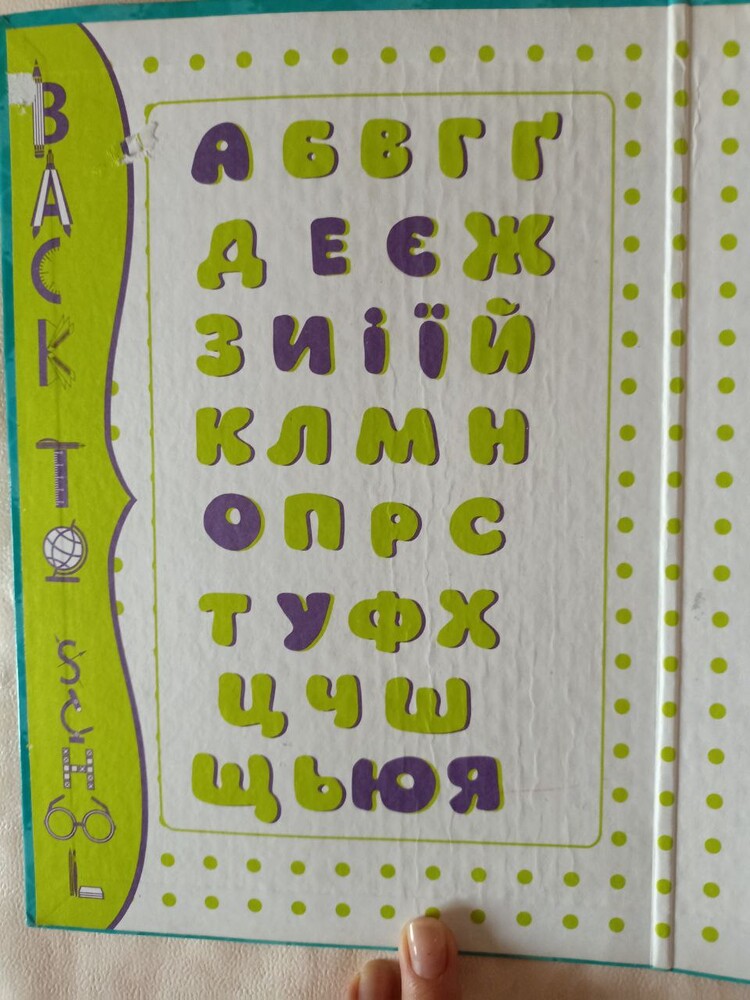 BACK TO SCHOOL
А Б В Г Ґ
Д Е Є Ж
З И і ї Й
К Л М Н
О П Р С
Т У Ф Х
Ц Ч Ш
Щ Ь Ю Я